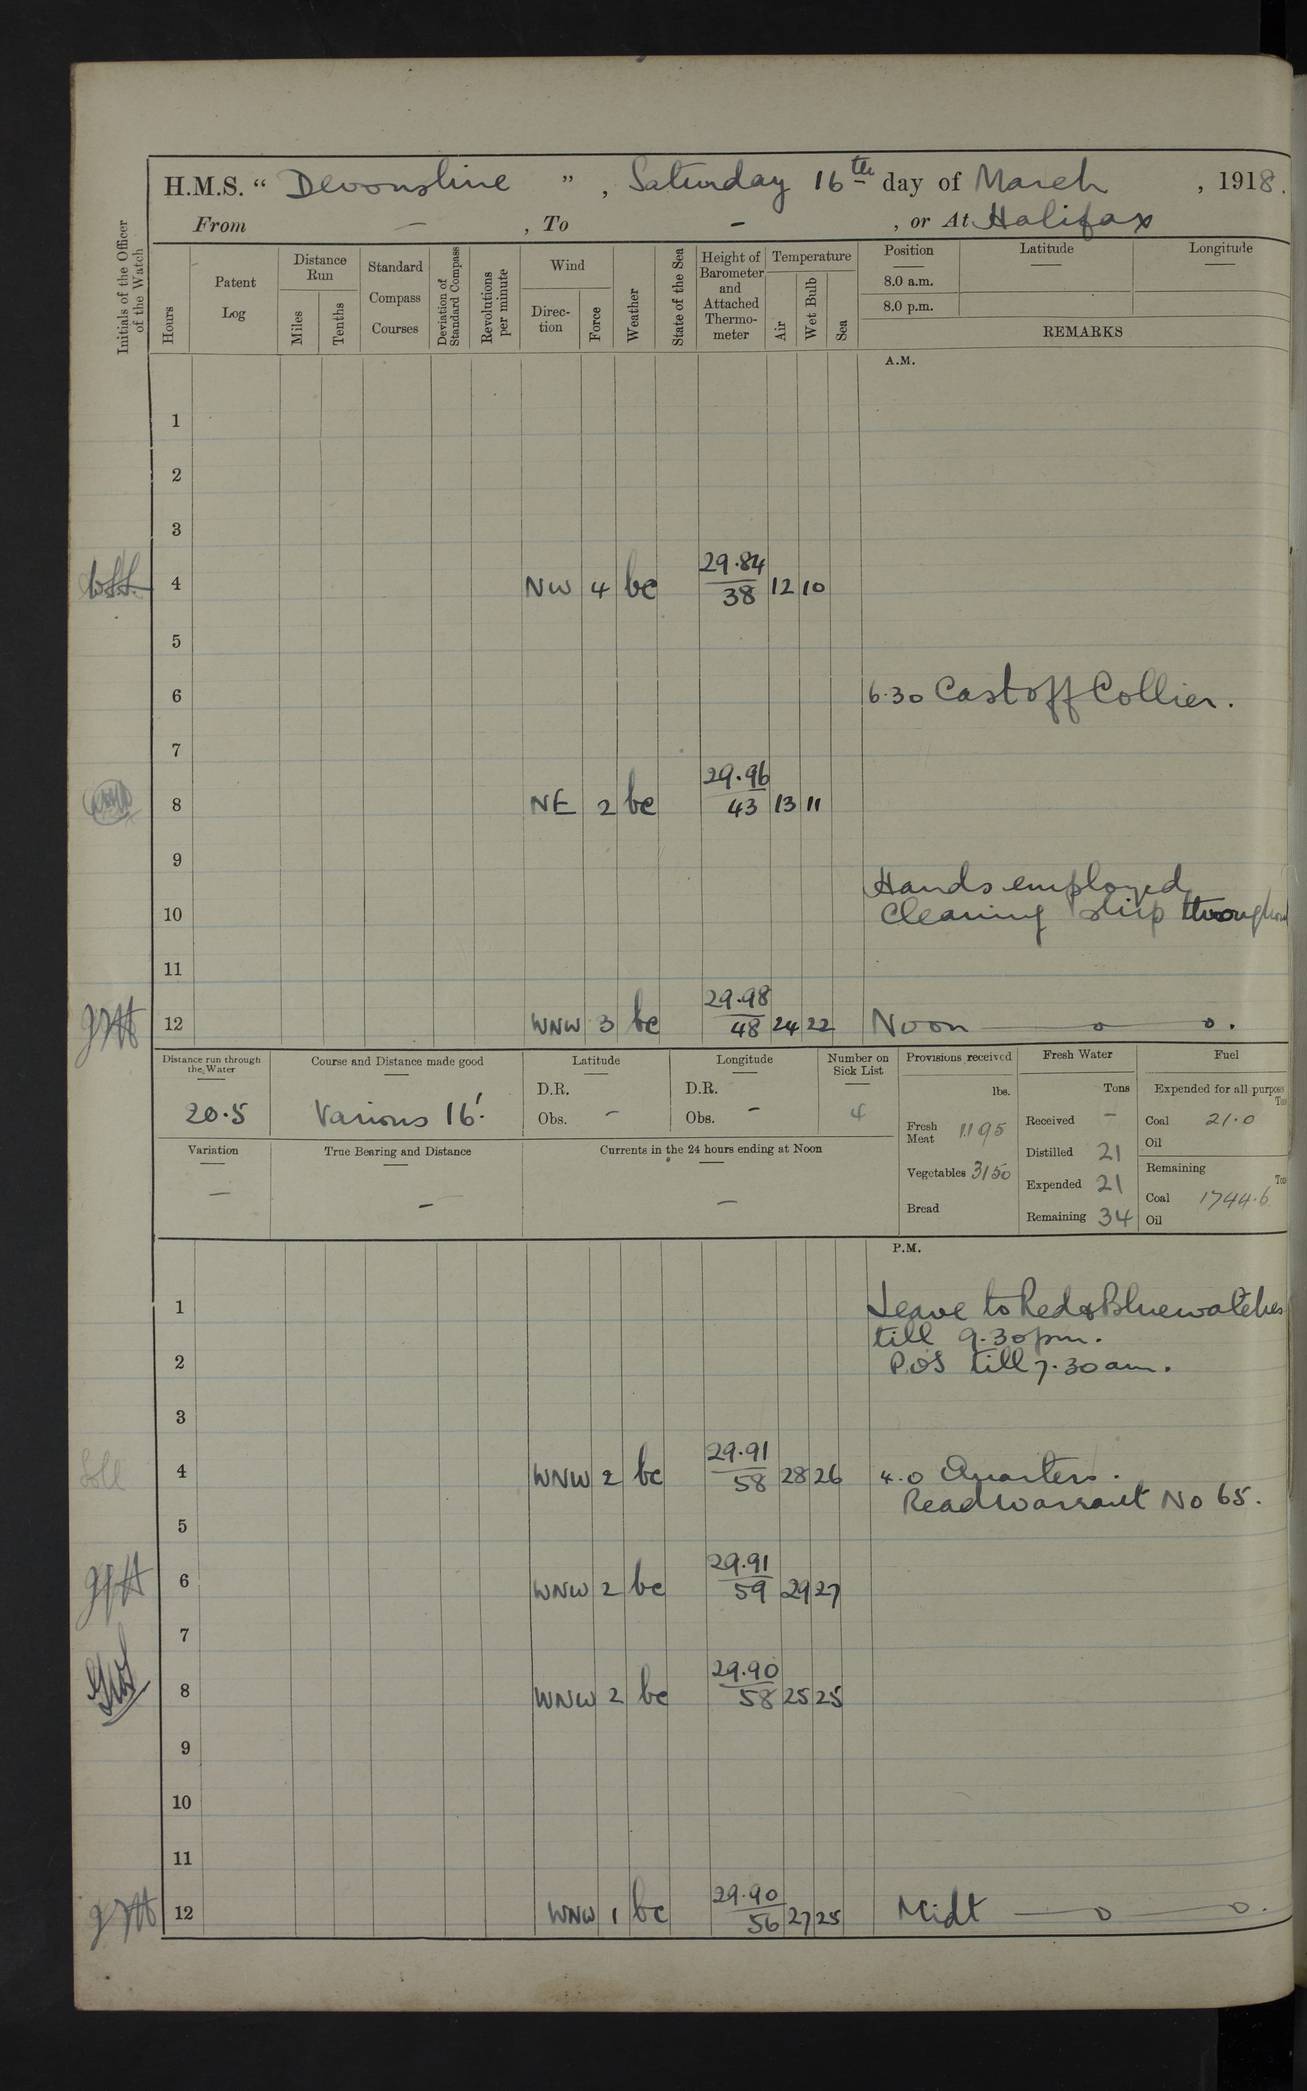 H.M.S. “ Devonshire ” , Saturday 16th day of March , 1918.
From — , To - , or At Halifax
Initials of the Officer of the Watch
Hours
Patent Log
Distance Run
Miles
Tenths
Standard Compass Courses
Deviation of Standard Compass
Revolutions per minute
Wind
Direc-tion
Force
Weather
State of the Sea
Height of Barometer and Attached Thermo-meter
Temperature
Air
Wet Bulb
Sea
Position
Latitude
Longitude
8.0 a.m.
8.0 p.m.
REMARKS
A.M.
1
2
3
4 NW 4 bc 29.84 38 12 10
5
6 6.30 Cast off Collier.
7
8 NE 2 bc 29.96 43 13 11
9
Hands employed
10 Cleaning ship throughout
11
12 WNW 3 bc 29.98 48 24 22 Noon — o — o .
Distance run through the Water
20.5
Course and Distance made good
Various 16'.
Latitude
D.R.
Obs. -
Longitude
D.R.
Obs. -
Number on Sick List
4
Provisions received
lbs.
Fresh Meat 1195
Vegetables 3150
Bread
Fresh Water
Tons
Received -
Distilled 21
Expended 21
Remaining 34
Fuel
Expended for all purposes
Coal 21.0
Oil
Remaining
Coal 1744.6
Oil
Variation
—
True Bearing and Distance
-
Currents in the 24 hours ending at Noon
—
P.M.
1 Leave to Red & Blue watches
till 9.30 pm.
2 P.O's till 7.30 am.
3
4 WNW 2 bc 29.91 58 28 26 4.0 Quarters.
Read Warrant No 65.
5
6 WNW 2 bc 29.91 59 29 27
7
8 WNW 2 bc 29.90 58 25 25
9
10
11
12 WNW 1 bc 29.90 56 27 25 Midt — o — o .